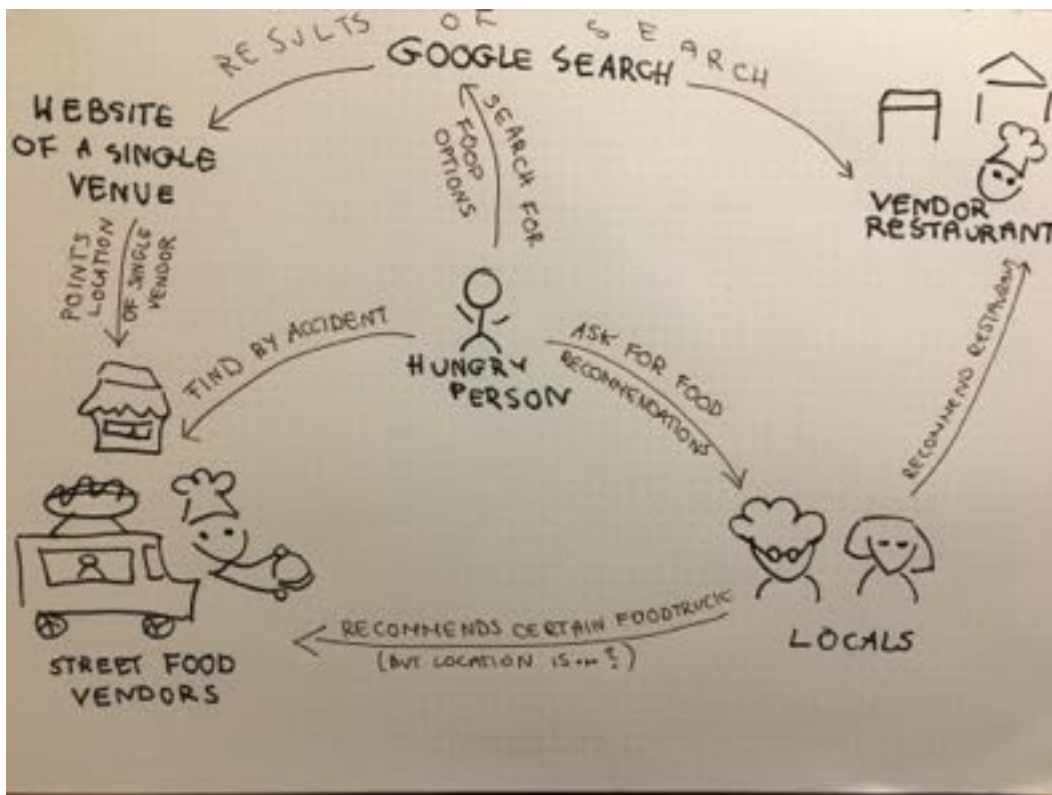 RESULTS OF SEARCH
GOOGLE SEARCH
WEBSITE
OF A SINGLE
VENUE
SEARCH FOR
FOOD
OPTIONS
VENDOR
RESTAURANT
POINTS
LOCATION
OF SINGLE
VENDOR
FIND BY ACCIDENT
HUNGRY
PERSON
ASK FOR FOOD
RECOMMENDATIONS
RECOMMEND RESTAURANT
RECOMMENDS CERTAIN FOODTRUCK
(BUT LOCATION IS...?)
LOCALS
STREET FOOD
VENDORS